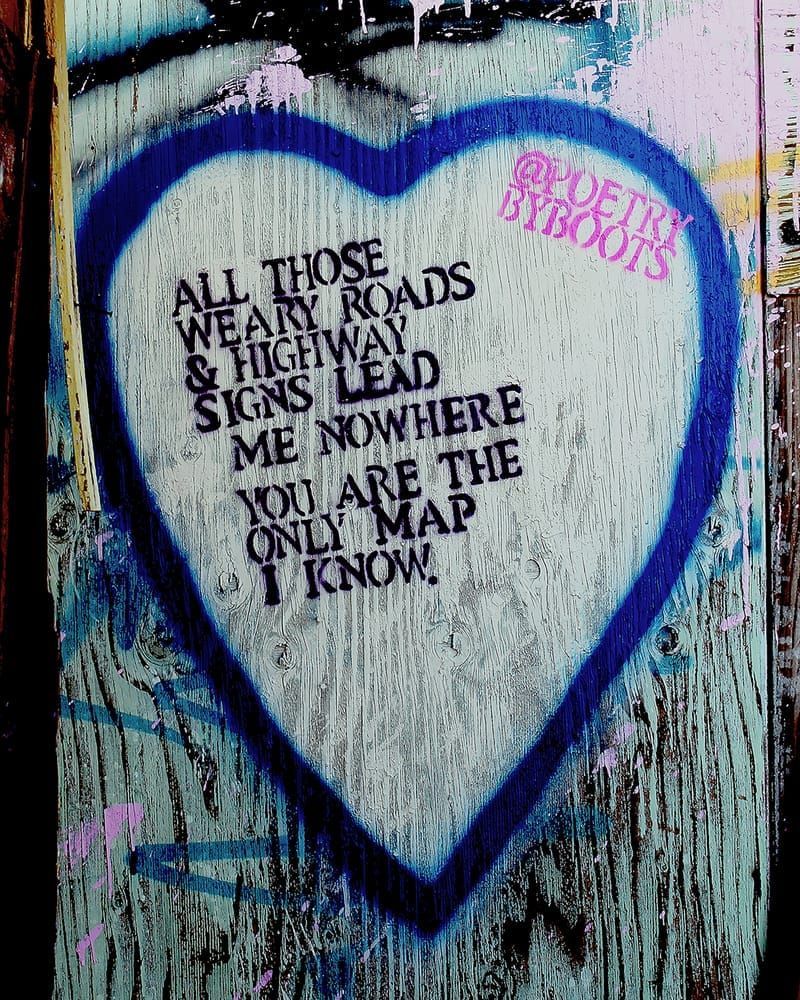 @POETRY
BYBOOTS
ALL THOSE
WEARY ROADS
& HIGHWAY
SIGNS LEAD
ME NOWHERE
YOU ARE THE
ONLY MAP
I KNOW.